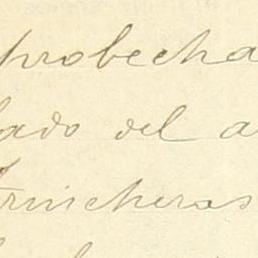 probecha
lado del a
Trincheras